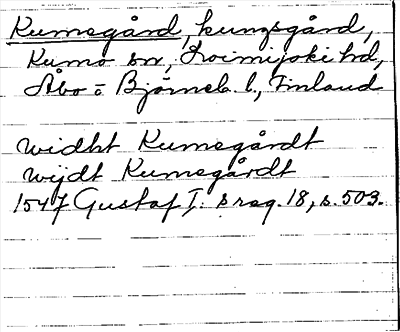 Kumogård, kungsgård,
Kumo sn, Loimijoki hd,
Åbo o Björneb. l., Finland
widht Kumogårdt
wijdt Kumogårdt
1547 Gustaf I: s reg. 18, s. 503.